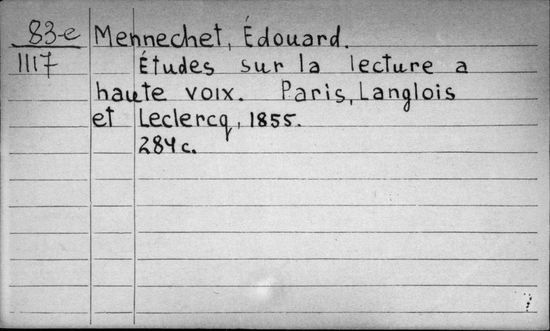 83-е Mennechet, Édouard.
1117 Études sur la lecture a
haute voix. Paris, Langlois
et Leclercq, 1855.
284 c.